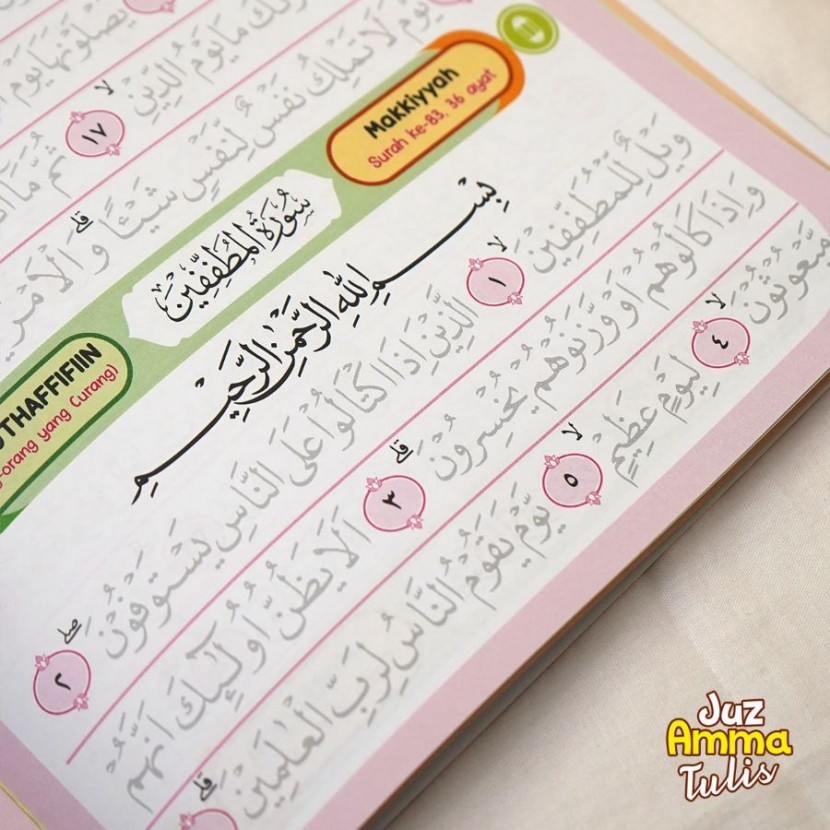 يَصْلَوْنَهَا يَوْمَ
مَا يَوْمُ الدِّينِۙ ١٧ ثُمَّ مَآ
يَوْمَ لَا تَمْلِكُ نَفْسٌ لِّنَفْسٍ شَيْـًٔاۗ وَالْاَمْرُ
١١
Makkiyyah
Surah ke-83, 36 ayat
سُوْرَةُ الْمُطَفِّفِيْنَ
THAFFIFIIN
-orang yang Curang)
بِسْــــمِ اللهِ الرَّحْمٰنِ الرَّحِيْمِ
وَيْلٌ لِّلْمُطَفِّفِيْنَۙ ١ الَّذِيْنَ اِذَا اكْتَالُوْا عَلَى النَّاسِ يَسْتَوْفُوْنَۖ ٢
وَاِذَا كَالُوْهُمْ اَوْ وَّزَنُوْهُمْ يُخْسِرُوْنَۗ ٣ اَلَا يَظُنُّ اُولٰۤىِٕكَ اَنَّهُمْ
مَّبْعُوْثُوْنَۙ ٤ لِيَوْمٍ عَظِيْمٍۙ ٥ يَّوْمَ يَقُوْمُ النَّاسُ لِرَبِّ الْعٰلَمِيْنَۗ
Juz
Amma
Tulis